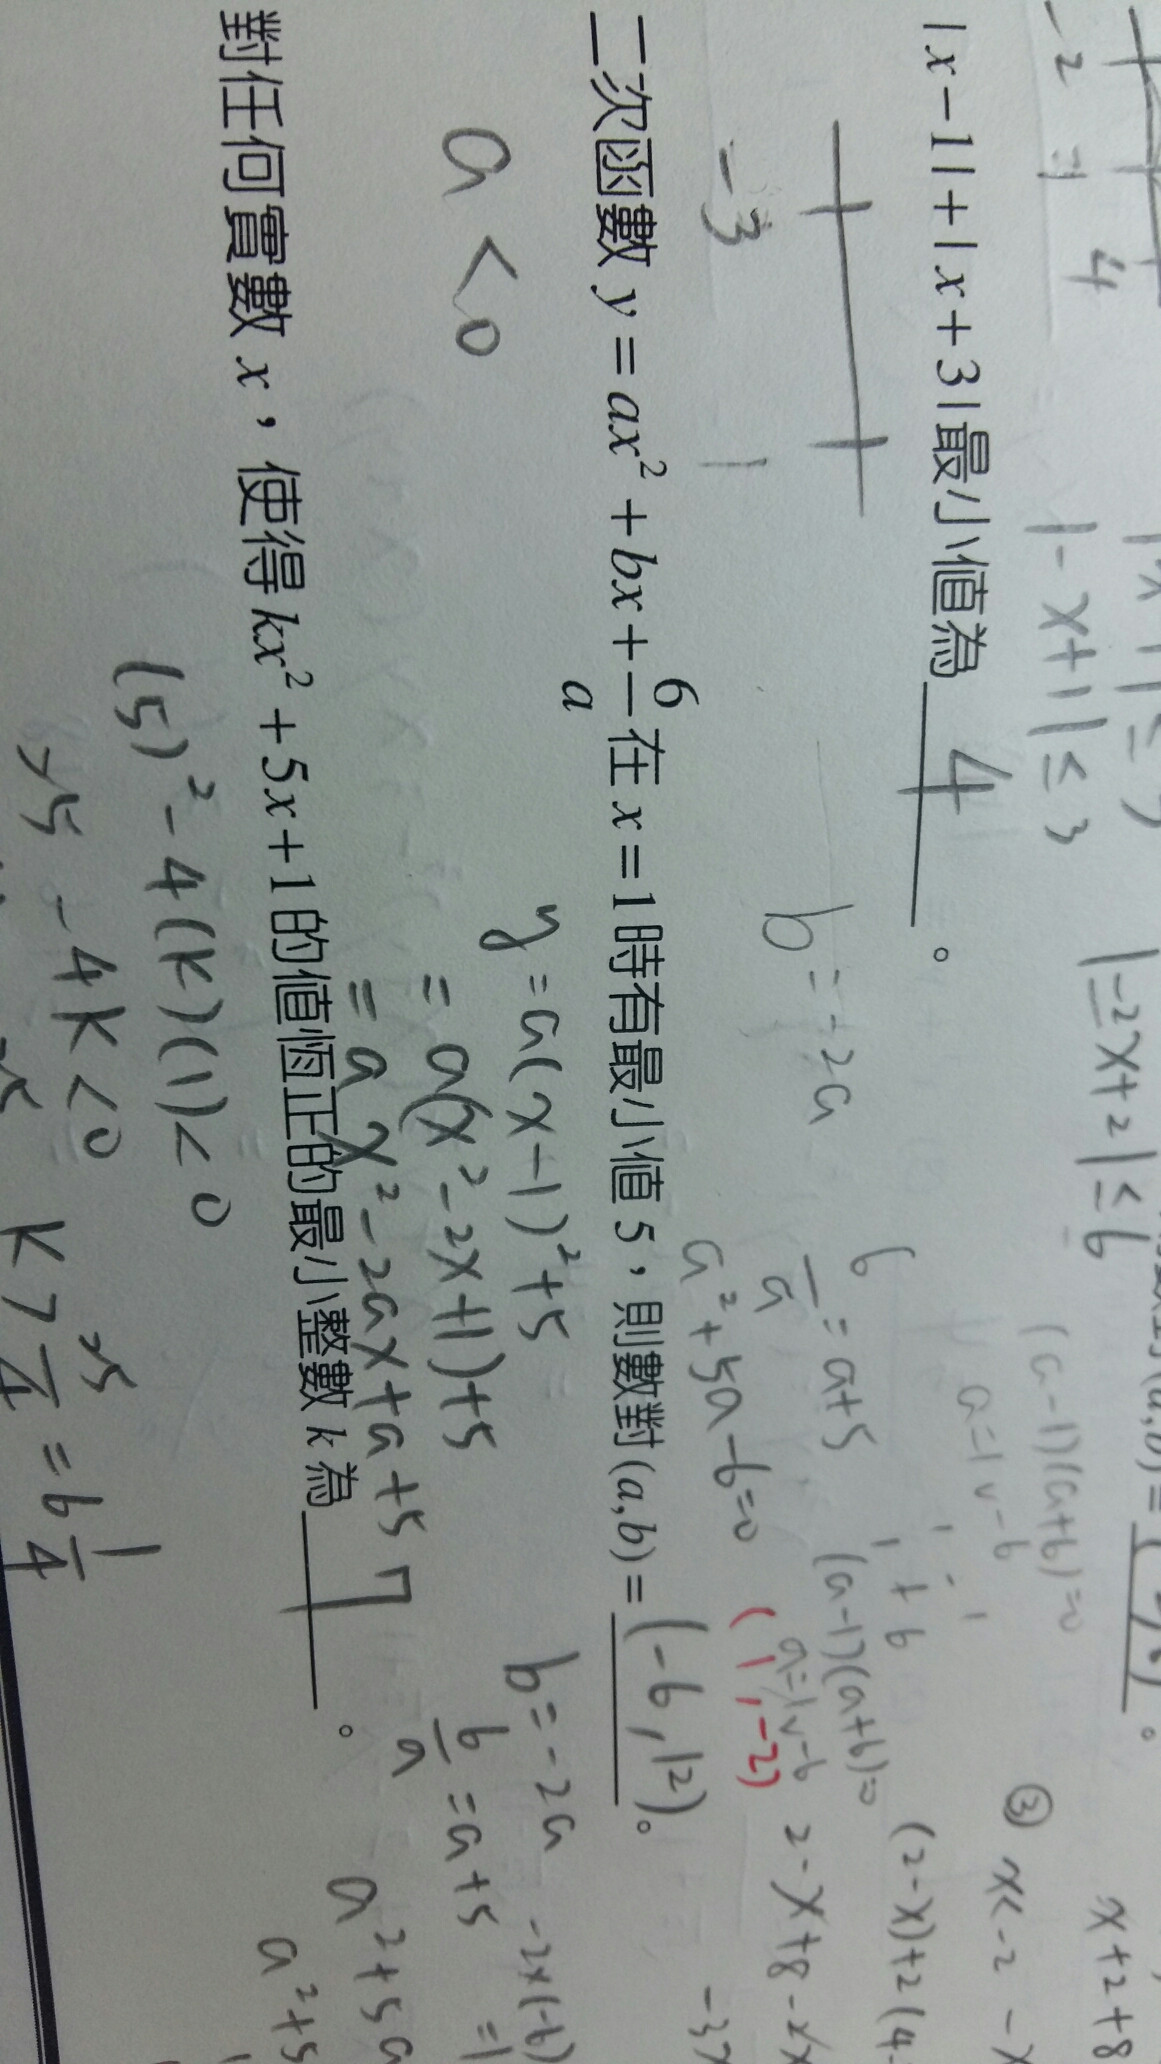 -2 -1 4
|-x+1|≤3
|-2x+2|≤6
x+2+8
③ x<-2
(a-1)(a+6)=0
a=1∨-6
|x-1|+|x+3|最小值為 4 。
-3 1
b=-2a
6/a=a+5
a²+5a-6=0
(a-1)(a+6)=0
a=1∨-6
(1,-2)
2-x+8-2x
二次函數 y=ax²+bx+6/a 在 x=1 時有最小值 5,則數對(a,b)= (-6,12)。
a<0
y=a(x-1)²+5
=a(x²-2x+1)+5
=ax²-2ax+a+5
b=-2a
6/a=a+5
-2×(-6)
a²+5a
a²+5
對任何實數 x,使得 kx²+5x+1 的值恆正的最小整數 k 為 7 。
(5)²-4(k)(1)<0
25-4k<0
k>25/4=6 1/4